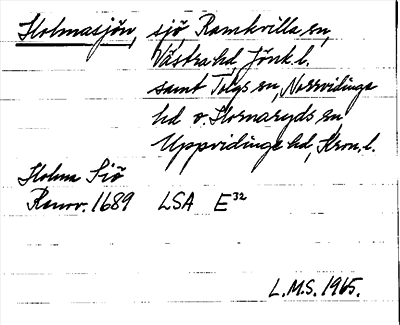 Holmasjön, sjö, Ramkvilla sn,
Västra hd Jönk. l.
samt Tolgs sn, Norrvidinge
hd o. Hornaryds sn
Uppvidinge hd, Kron. l.
Holma Siö
Renov. 1689 LSA E³²
L.M.S. 1965.